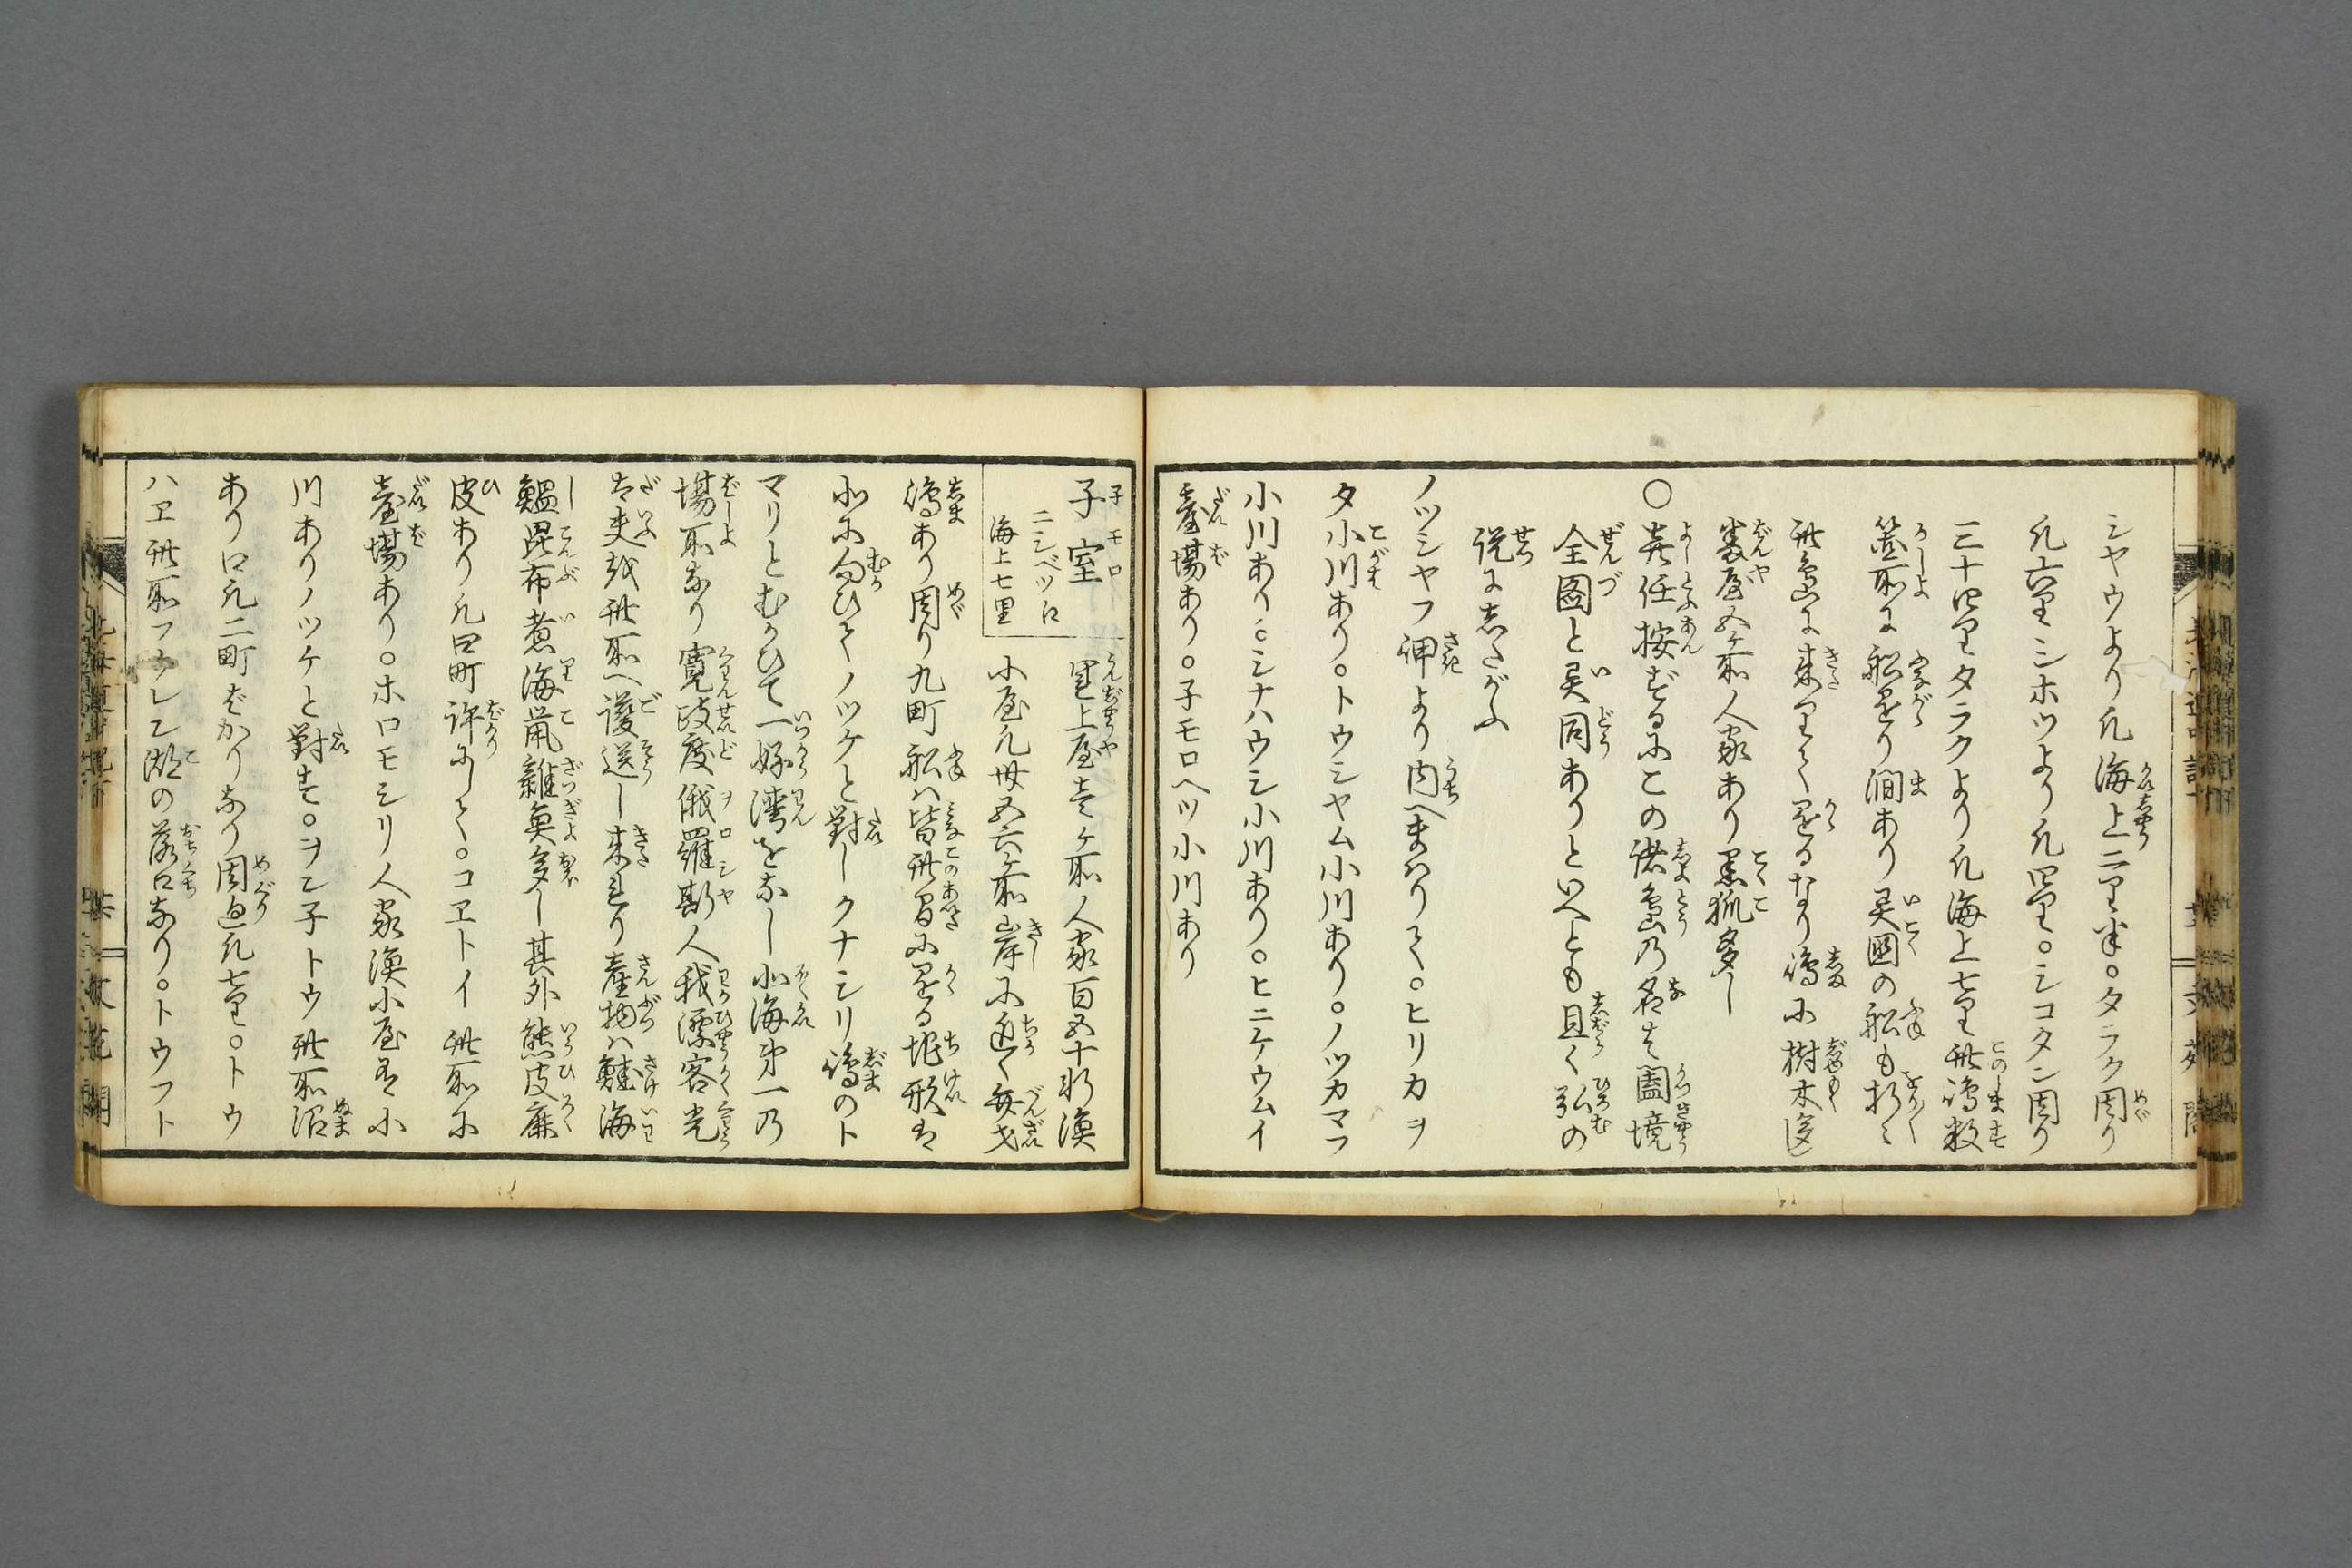 シヤウより凡海上二里半。タラク周り
凡六里シホツより凡四里。シコタン周り
三十四里タラクより凡海上七里此嶋数
箇所に船懸り澗あり異國の船も折々
此島に来りて懸るなり嶋に樹木多
番屋五ヶ所人家あり黒狐多し
〇義任按ずるにこの諸島乃名は闔境
全圖と異同ありといへとも且く弘の
説にしたがふ
ノツシヤフ岬より内へまはりて。ヒリカヲ
タ小川あり。トウシヤム小川あり。ノツカマフ
小川あり。シナハウシ小川あり。ヒニケウムイ
臺場あり。子モロヘツ小川あり
子室
ニシベツ江
海上七里
運上屋壱ヶ所人家百五十軒漁
小屋凡廿五六ヶ所岸に近く弁才
嶋あり周り九町船は皆此間に懸る地形は
北に向ひてノツケと對しクナシリ嶋のト
マリとむかひて一好湾をなし北海第一乃
場所なり寛政度俄羅斯人我漂客光
太夫を此所へ護送し来れり産物は鮭海
鰮昆布煮海鼠雑魚多し其外熊皮鹿
皮あり凡四町許にして。コヱトイ此所に
臺場あり。ホロモシリ人家漁小屋有小
川ありノツケと對す。ヲン子トウ此所沼
あり口凡二町ばかりなり周廻凡七里。トウ
ハヱ此所フウレン湖の落口なり。トウフト